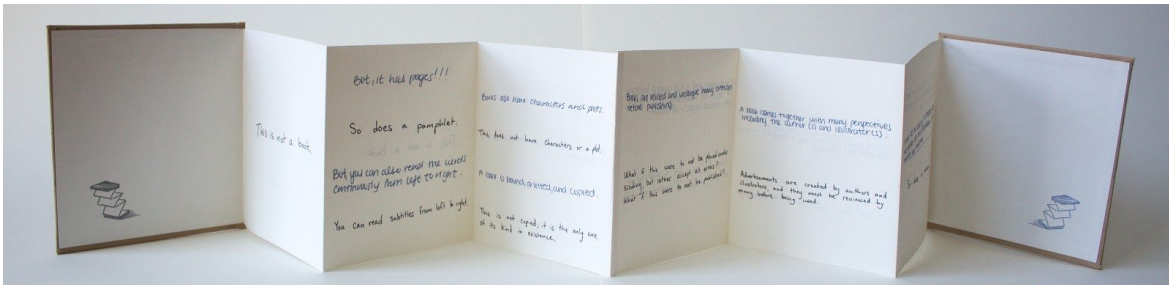 This is not a book.
But, it has pages!!!
So does a pamphlet.
But you can also read the words
continuously from left to right.
You can read subtitles from left to right.
Books also have characters and plots.
This does not have characters or a plot.
A book is bound, printed, and copied.
This is not copied, it is the only one
of its kind in existence.
Books are revised and undergo heavy criticism
before publishing.
What if this were to not be placed under
scrutiny, but rather accept its errors?
What if this were to not be published?
A book comes together with many perspectives
including the author(s) and illustrator(s).
Advertisements are created by authors and
illustrators, and they must be reviewed by
many before being used.